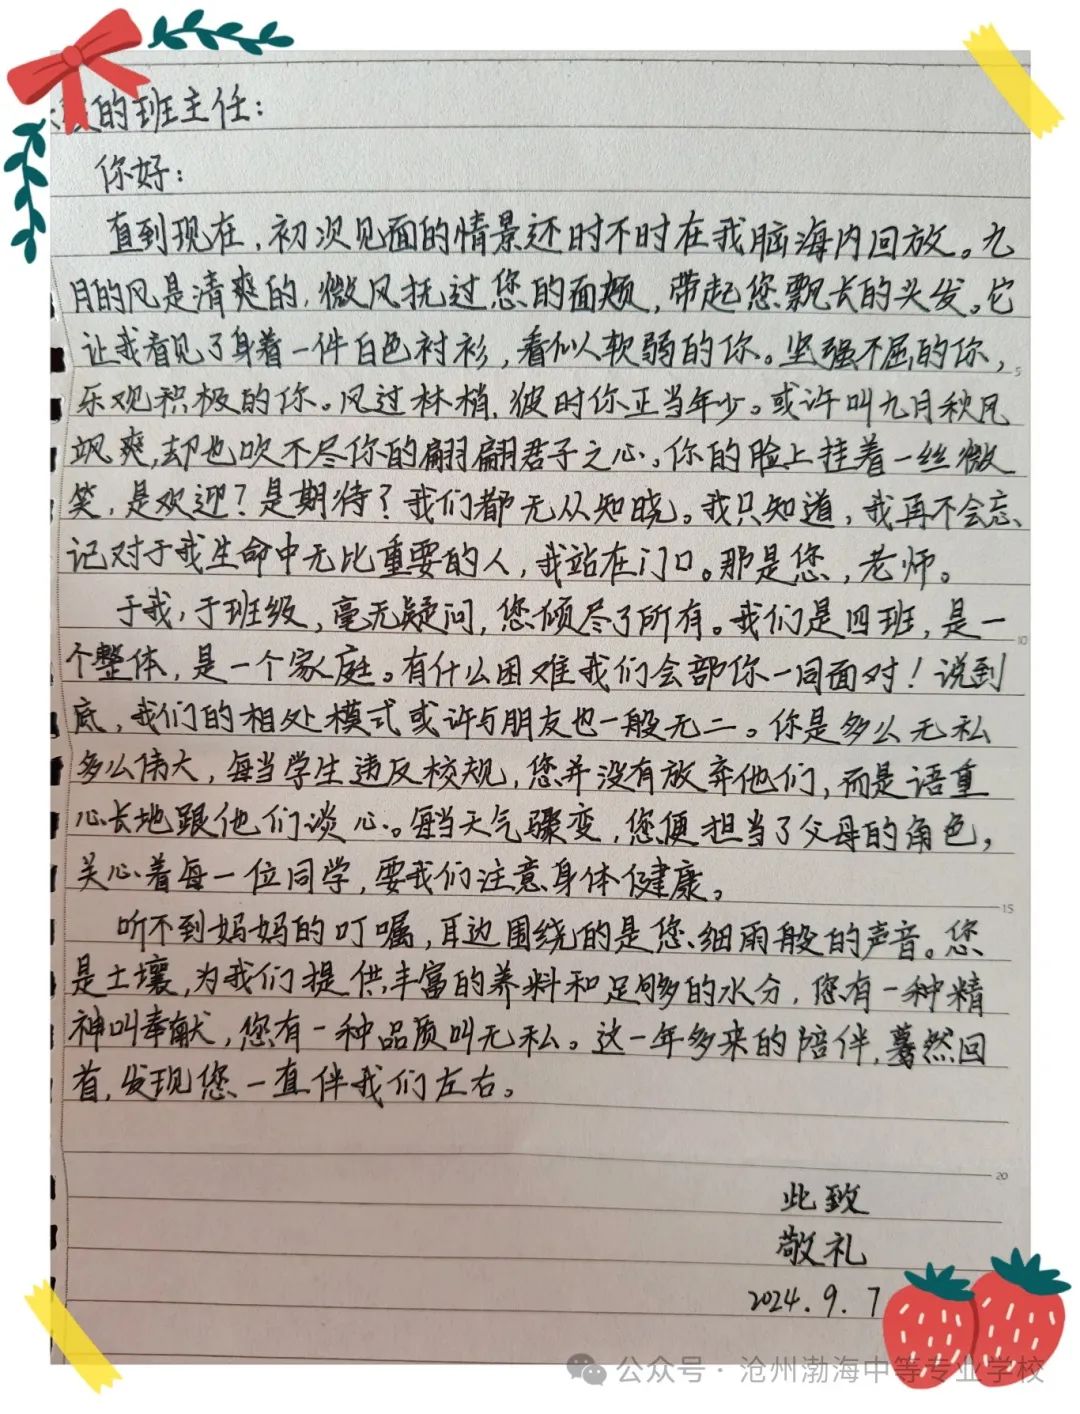 的班主任：
你好：
直到现在，初次见面的情景还时不时在我脑海内回放。九
月的风是清爽的，微风抚过您的面颊，带起您飘长的头发。它
让我看见了身着一件白色衬衫，看似软弱的你。坚强不屈的你，
乐观积极的你。风过林梢，彼时你正当年少。或许叫九月秋风
飒爽，却也吹不尽你的翩翩君子之心。你的脸上挂着一丝微
笑，是欢迎？是期待？我们都无从知晓。我只知道，我再不会忘
记对于我生命中无比重要的人，我站在门口。那是您，老师。
于我，于班级，毫无疑问，您倾尽了所有。我们是四班，是一
个整体，是一个家庭。有什么困难我们会部你一同面对！说到
底，我们的相处模式或许与朋友也一般无二。你是多么无私
多么伟大，每当学生违反校规，您并没有放弃他们，而是语重
心长地跟他们谈心。每当天气骤变，您便担当了父母的角色，
关心着每一位同学，要我们注意身体健康。
听不到妈妈的叮嘱，耳边围绕的是您细雨般的声音。您
是土壤，为我们提供丰富的养料和足够多的水分，您有一种精
神叫奉献，您有一种品质叫无私。这一年多来的陪伴，蓦然回
首，发现您一直伴我们左右。
此致
敬礼
2024.9.7
5
10
15
20
公众号·沧州渤海中等专业学校